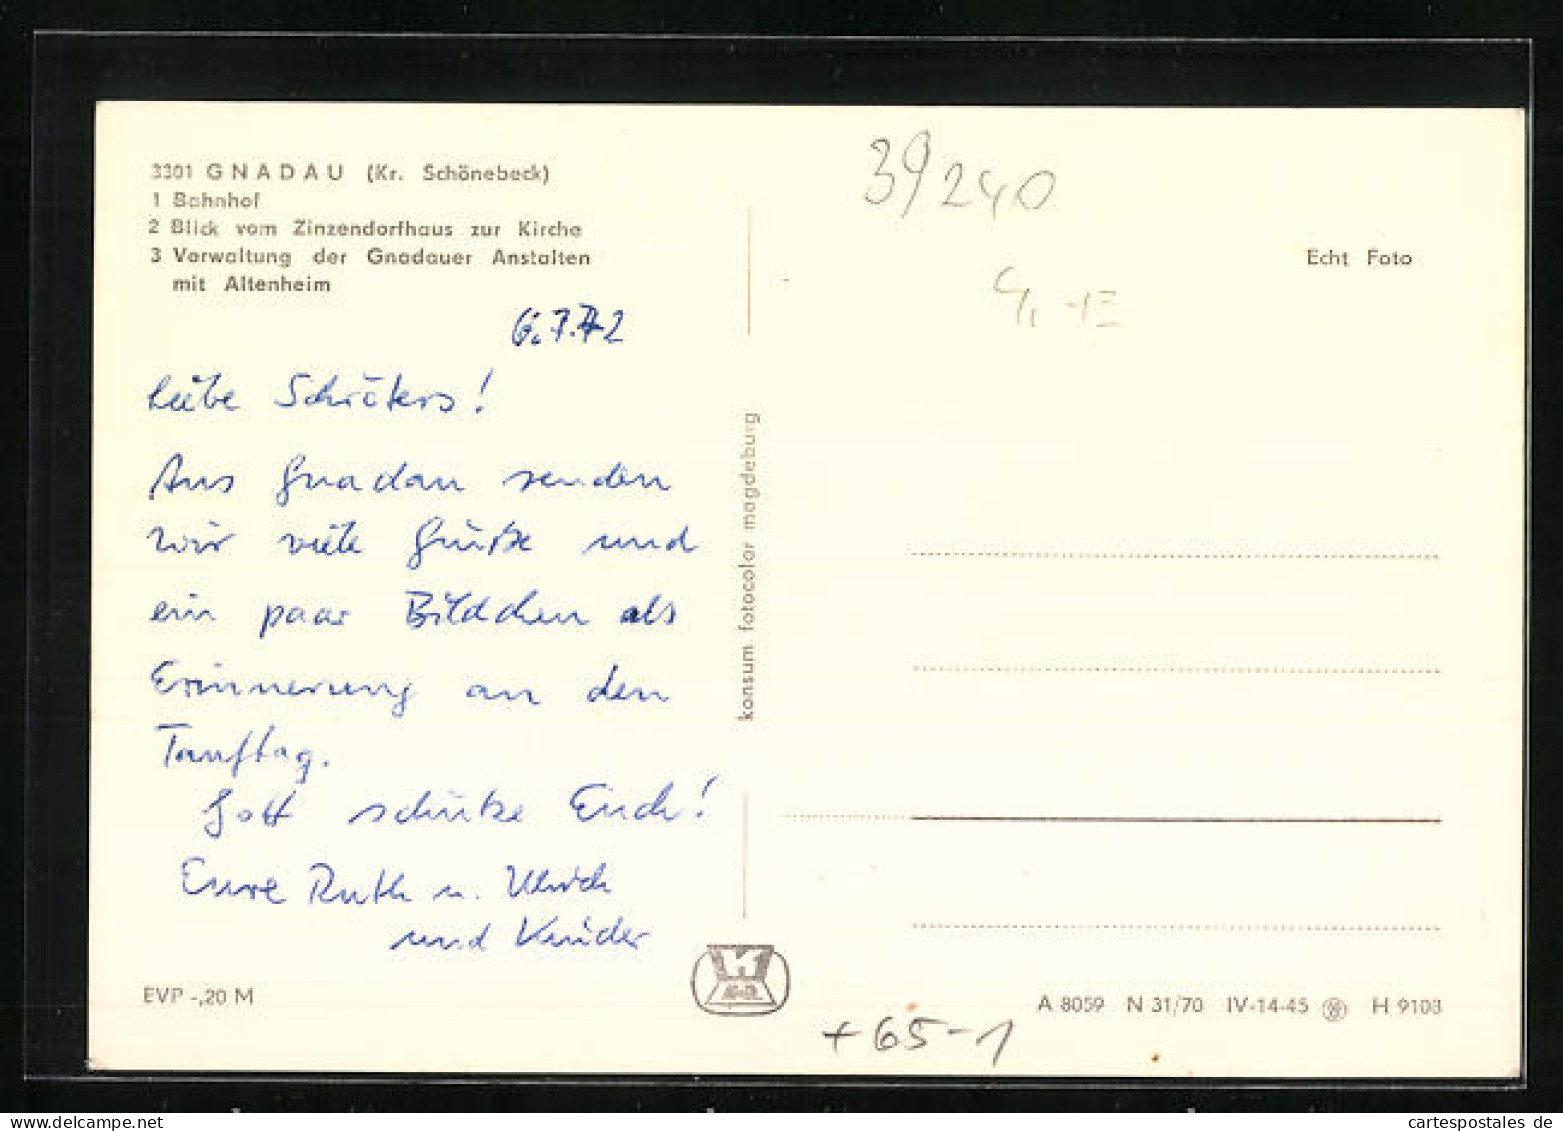 3301 GNADAU (Kr. Schönebeck)
1 Bahnhof
2 Blick vom Zinzendorfhaus zur Kirche
3 Verwaltung der Gnadauer Anstalten
mit Altenheim
6.7.72
Liebe Schröters!
Aus Gnadau senden
wir viele Grüße und
ein paar Bildchen als
Erinnerung an den
Tauftag.
Gott schütze Euch!
Eure Ruth u. Ulrich
und Kinder
EVP -,20 M
konsum fotocolor magdeburg
39240
Echt Foto
A 8059 N 31/70 IV-14-45 H 9103
+65-1
cartespostales.de